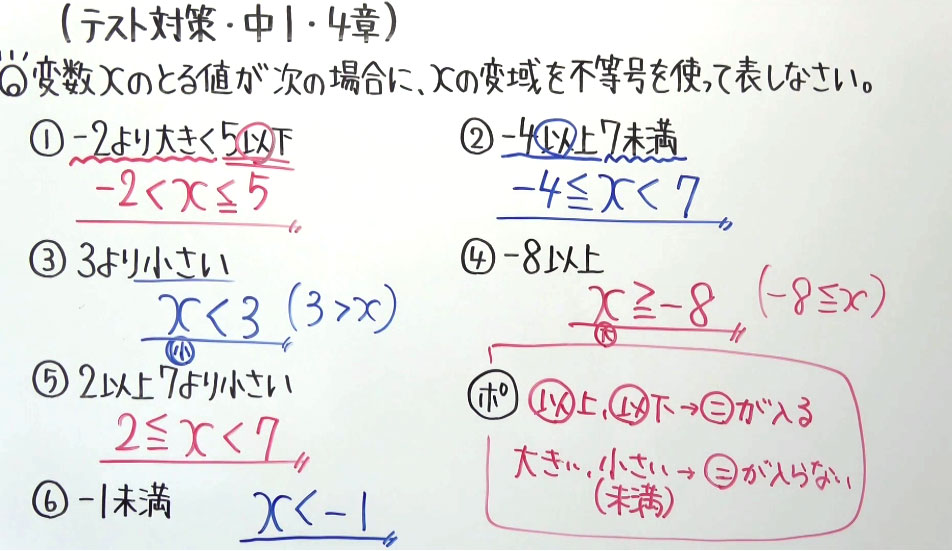 (テスト対策・中1・4章)
◎変数xのとる値が次の場合に、xの変域を不等号を使って表しなさい。
① -2より大きく5以下
-2<x≦5
② -4以上7未満
-4≦x<7
③ 3より小さい
x<3 (3>x)
小
④ -8以上
x≧-8 (-8≦x)
大
⑤ 2以上7より小さい
2≦x<7
⑥ -1未満 x<-1
ポ 以上、以下→=が入る
大きい、小さい→=が入らない
(未満)